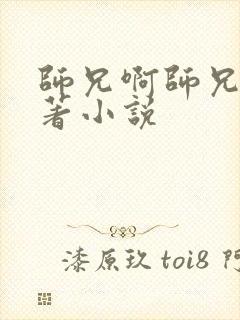 師兄啊師兄
著小說
漆原玖 toi8